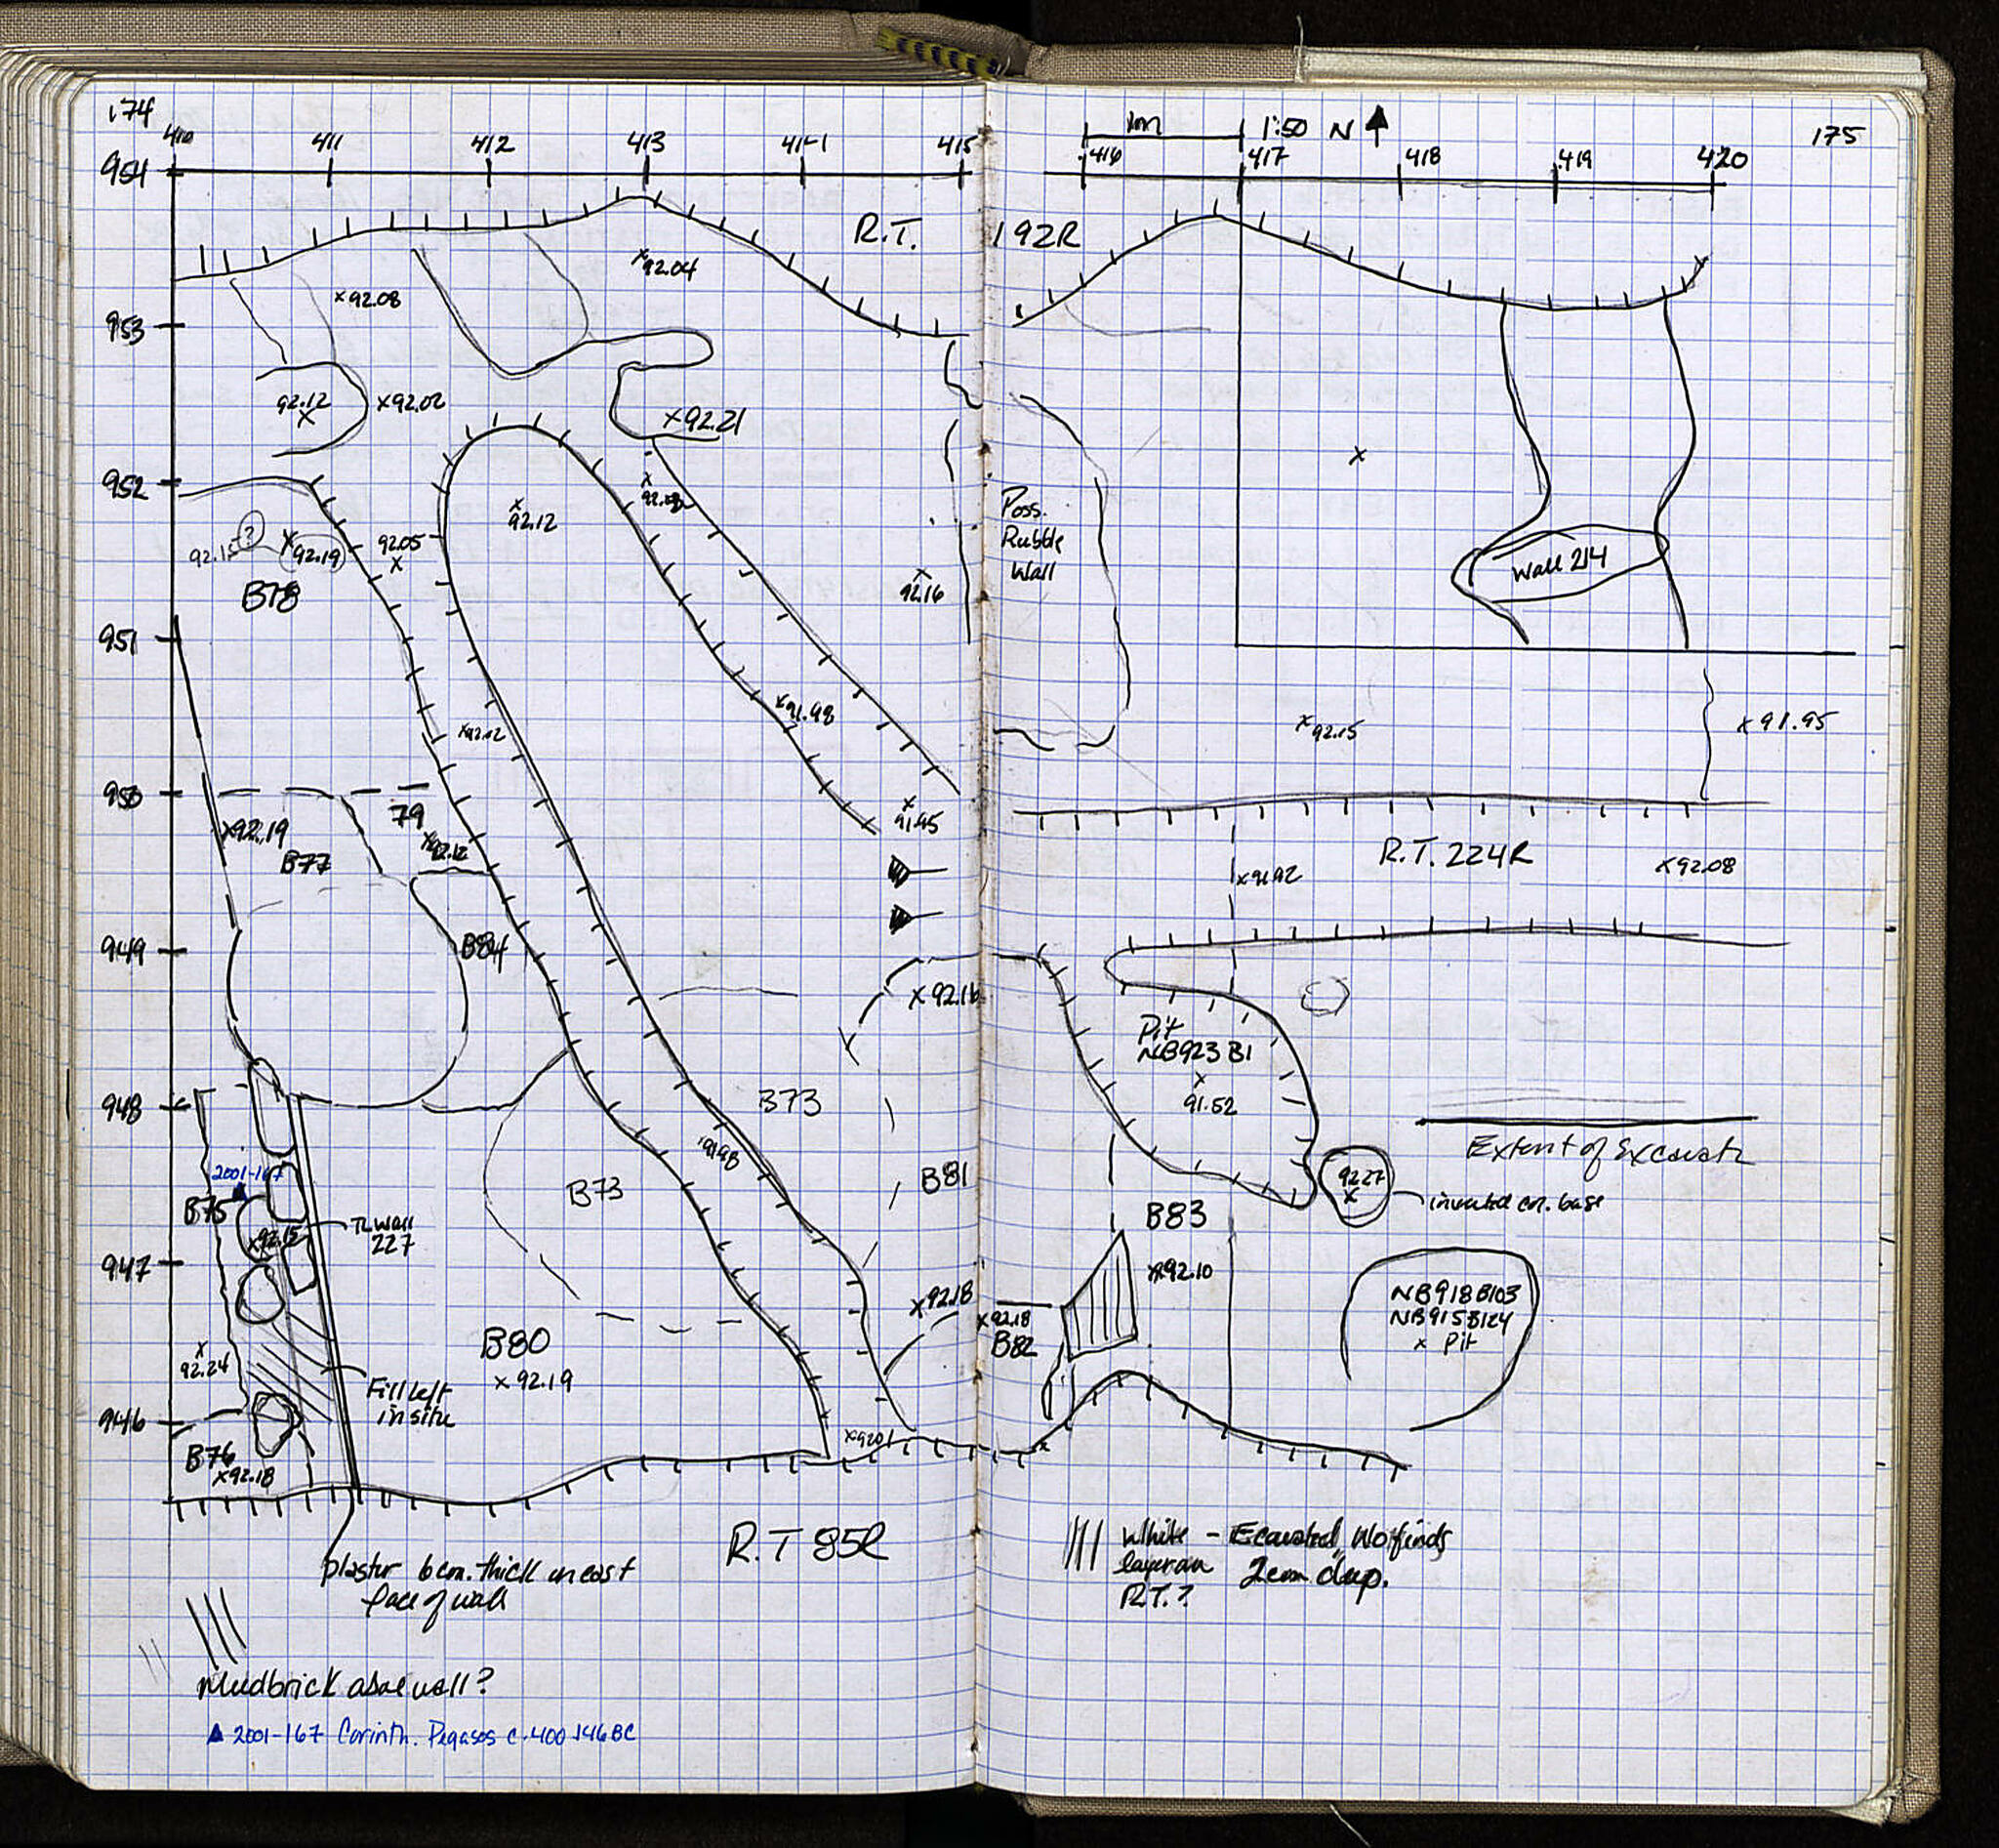 174
410 411 412 413 414 415
954
R.T.
x 92.04
x 92.08
953
92.12
x
x 92.02
x 92.21
952
x
92.12
x
92.15 ?
x 92.19
92.05
x
B78
x
92.16
951
x 91.98
x 92.12
950
79
x 92.19
x 92.12
x
91.95
B77
949
B84
x 92.16
948
B73
91.98
2001-167
B75
B73
B81
x 92.15
TL Wall
227
947
x 92.18
B80
x
92.24
x 92.19
Fill left
in situ
946
x 92.01
B76
x 92.18
R.T 85R
plaster 6cm. thick on east
face of wall
Mudbrick above wall?
▲ 2001-167 Corinth. Pegasos c. 400-146 BC
1m 1:50 N
175
416 417 418 419 420
192R
x
Poss.
Rubble
Wall
Wall 214
x 92.15
x 91.95
R.T. 224R
x 91.92
x 92.08
Pit
NB923 B1
x
91.52
Extent of Excavatn
92.27
x
inverted col. base
B83
x 92.10
x 92.18
B82
NB918 B103
NB915 B124
x Pit
||| White
layer on
R.T.?
- Excavated, No finds
2cm deep.